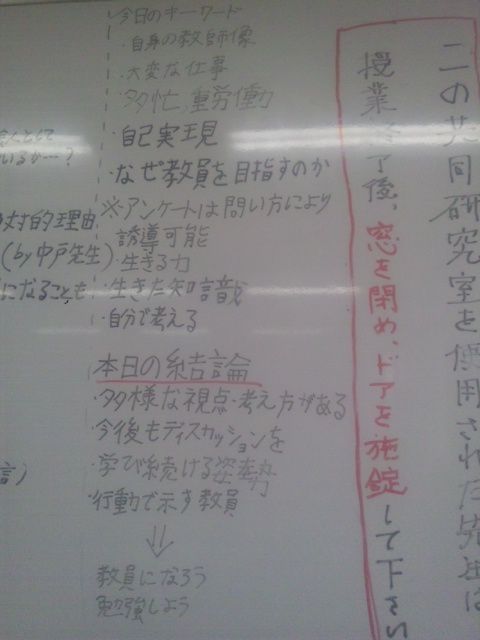 この共同研究室を使用された先生は
授業終了後、窓を閉め、ドアを施錠して下さい
今日のキーワード
・自身の教師像
・大変な仕事
・多忙、重労働
・自己実現
・なぜ教員を目指すのか
※アンケートは問い方により
誘導可能
・生きる力
・生きた知識
・自分で考える
本日の結論
・多様な視点・考え方がある
今後もディスカッションを
・学び続ける姿勢
・行動で示す教員
⇓
教員になろう
勉強しよう
いるか…?
対的理由
(by中戸先生)
になることも